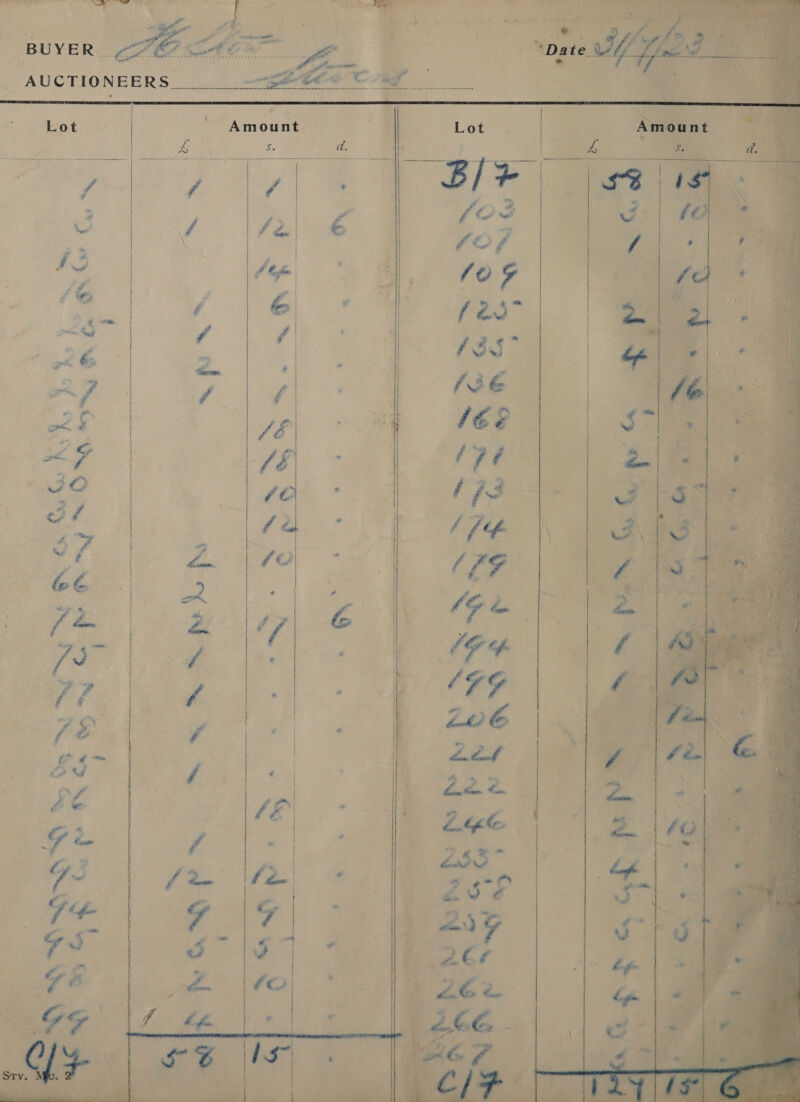 BUYER
Date 31/7/23
AUCTIONEERS Stevens
Lot Amount
£ s. d.
1 1 1 .
3 1 12 6
13 14 .
16 1 6 .
25 1 1 .
26 2 . .
27 1 1 .
28 18 .
29 18 .
30 10 .
31 12 .
57 2 10 .
66 2 . .
72 2 17 6
75 1 . .
77 1 . .
78 1 . .
85 1 . .
86 18 .
92 1 . .
93 12 12 .
94 9 9 .
95 5 5 .
98 2 10 .
99 4 . .
C/F 58 15 .
Sty. Mfu. 2
Lot Amount
£ s. d.
B/F 58 15 .
103 3 10 .
107 1 . .
109 10 .
125 2 2 .
135 4 . .
136 16 .
162 5 . .
171 2 . .
173 3 5 .
174 3 3 .
179 1 5 .
192 2 . .
194 1 15 .
199 1 15
206 12
221 1 12 6
222 2 . .
246 2 10
255 4 . .
258 5 . .
259 5 5 .
261 4 . .
262 4 . .
266 3 .
267 3 .
C/F 124 15 6